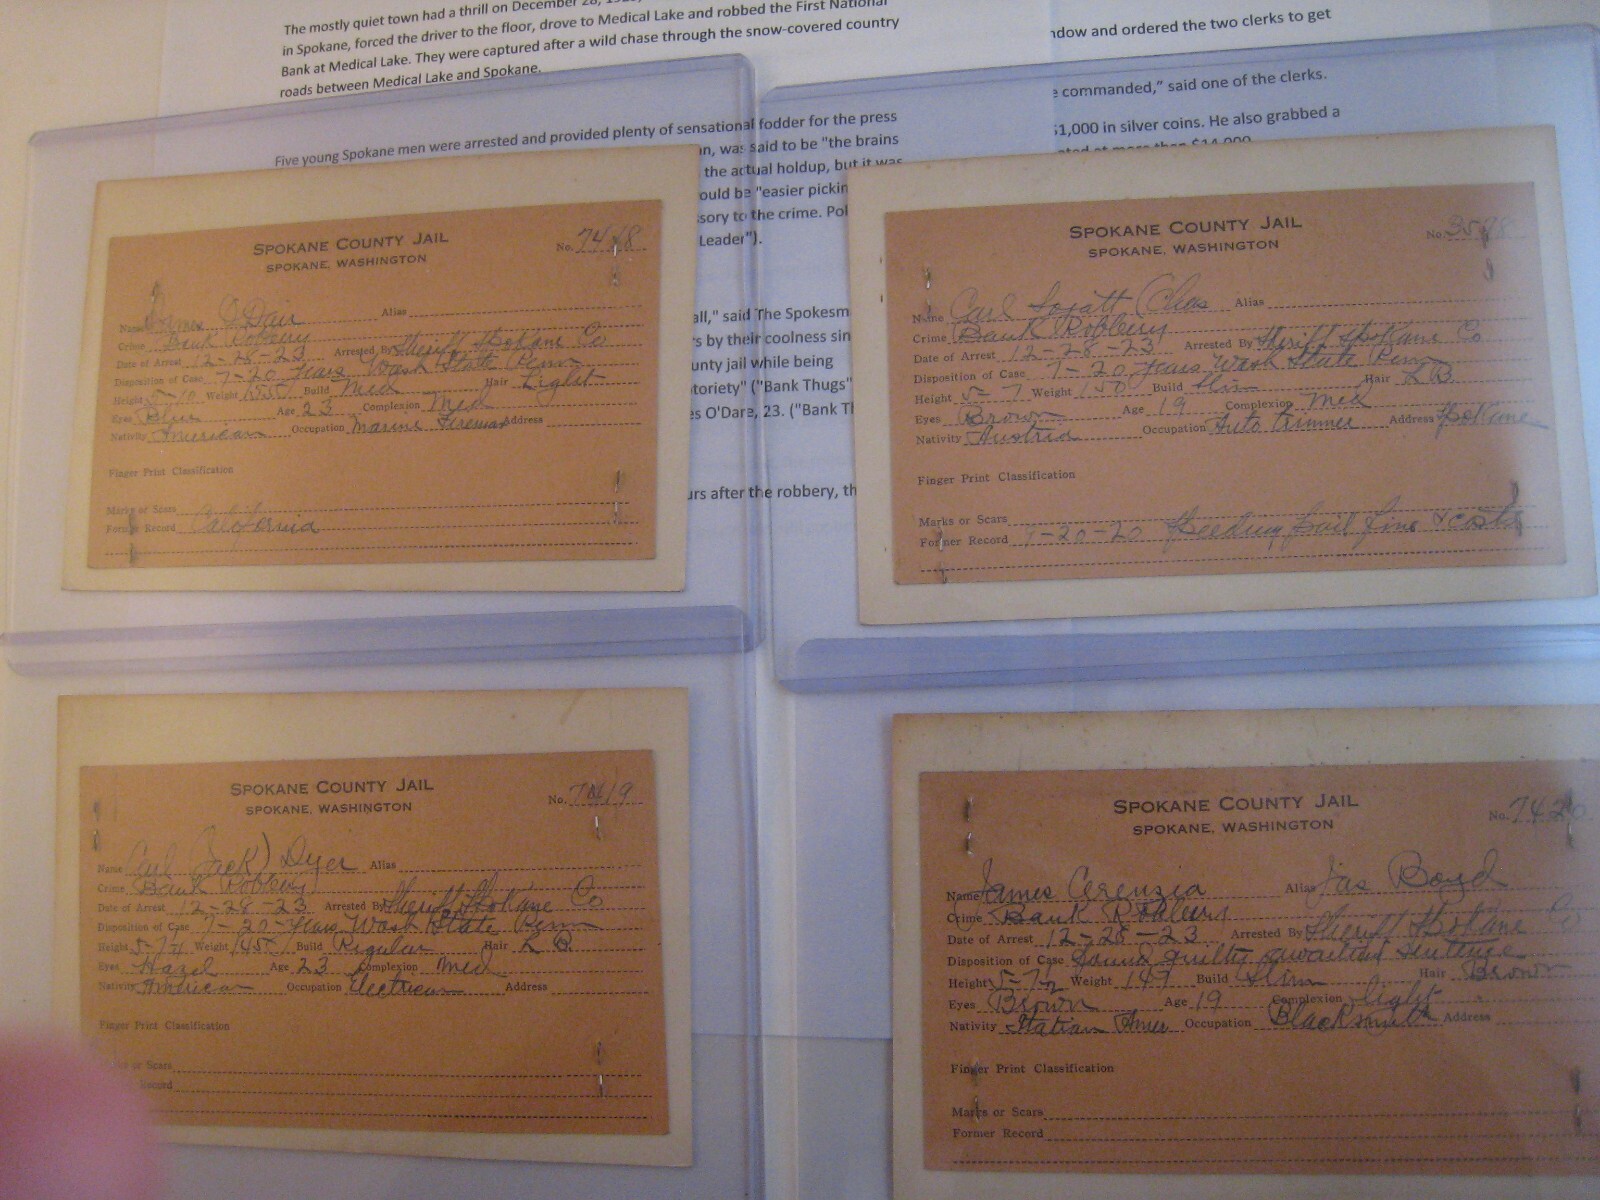 The mostly quiet town had a thrill on December 28,
in Spokane, forced the driver to the floor, drove to Medical Lake and robbed the First National
Bank at Medical Lake. They were captured after a wild chase through the snow-covered country
roads between Medical Lake and Spokane.
ndow and ordered the two clerks to get
e commanded," said one of the clerks.
$1,000 in silver coins. He also grabbed a
ated at more than $14,000
Five young Spokane men were arrested and provided plenty of sensational fodder for the press
an, was said to be "the brains
the actual holdup, but it was
ould be "easier pickin
ssory to the crime. Pol
Leader").
all," said The Spokesm
rs by their coolness sin
unty jail while being
toriety" ("Bank Thugs"
es O'Dare, 23. ("Bank Th
urs after the robbery, th
SPOKANE COUNTY JAIL
SPOKANE, WASHINGTON
No. 7418
Name James O'Dair Alias
Crime Bank Robbery
Date of Arrest 12-28-23 Arrested By Sheriff Spokane Co
Disposition of Case 7-20 Years Wash State Penn
Height 5-10 Weight 155 Build Med Hair Light
Eyes Blue Age 23 Complexion Med
Nativity American Occupation Marine Fireman Address
Finger Print Classification
Marks or Scars
Former Record California
SPOKANE COUNTY JAIL
SPOKANE, WASHINGTON
No. 3598
Name Carl (Chas Alias
Crime Bank Robbery
Date of Arrest 12-28-23 Arrested By Sheriff Spokane Co
Disposition of Case 7-20 Years Wash State Penn
Height 5-7 Weight 150 Build Slim Hair L B
Eyes Brown Age 19 Complexion Med
Nativity Austria Occupation Auto trimmer Address Spokane
Finger Print Classification
Marks or Scars
Former Record -20-20 Speeding Jail fine & costs
SPOKANE COUNTY JAIL
SPOKANE, WASHINGTON
No. 7419
Name Carl (Jack) Dyer Alias
Crime Bank Robbery
Date of Arrest 12-28-23 Arrested By Sheriff Spokane Co
Disposition of Case 7-20-Years Wash State Penn
Height 5-7½ Weight 145 Build Regular Hair L B
Eyes Hazel Age 23 Complexion Med
Nativity American Occupation Electrican Address
Finger Print Classification
or Scars
Record
SPOKANE COUNTY JAIL
SPOKANE, WASHINGTON
No. 7420
Name James Cerenzia Alias Jas Boyd
Crime Bank Robbery
Date of Arrest 12-28-23 Arrested By Sheriff Spokane Co
Disposition of Case Found guilty awaiting sentence
Height 5-7½ Weight 147 Build Slim Hair Brown
Eyes Brown Age 19 Complexion light
Nativity Italian Amer Occupation Blacksmith Address
Finger Print Classification
Marks or Scars
Former Record